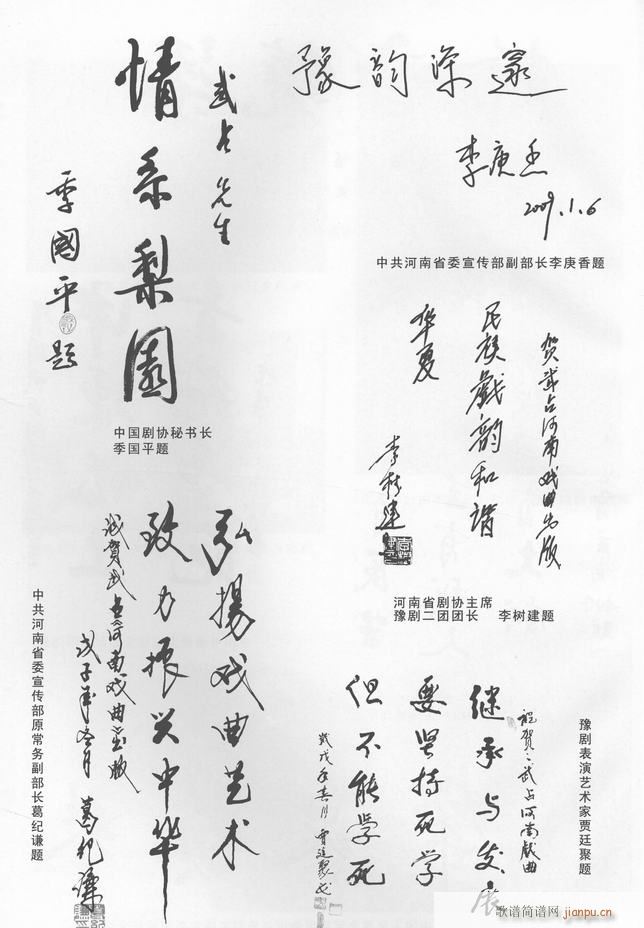 豫韵深邃
李庚香
2009.1.6
中共河南省委宣传部副部长李庚香题
武占先生
情系梨园
季國平
题
中国剧协秘书长
季国平题
贺武占河南戏曲出版
民族戲韵和谐
华夏
李树建
河南省剧协主席
豫剧二团团长 李树建题
弘揚戏曲艺术
致力振兴中华
诚贺武占河南戏曲出版
戊子年冬月
葛纪谦
中共河南省委宣传部原常务副部长葛纪谦题
祝贺武占河南戲曲
继承与发展
要坚持死学
但不能学死
贾廷聚
豫剧表演艺术家贾廷聚题
歌谱简谱网
jianpu.cn